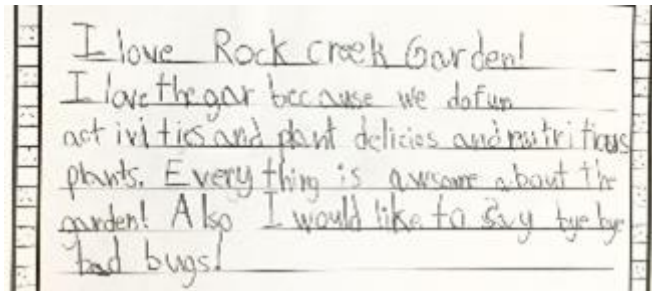 I love Rock creek Garden!
I love the gar because we do fun
activities and plant delicies and nutritious
plants. Everything is awsome about the
garden! Also I would like to say bye bye
bad bugs!